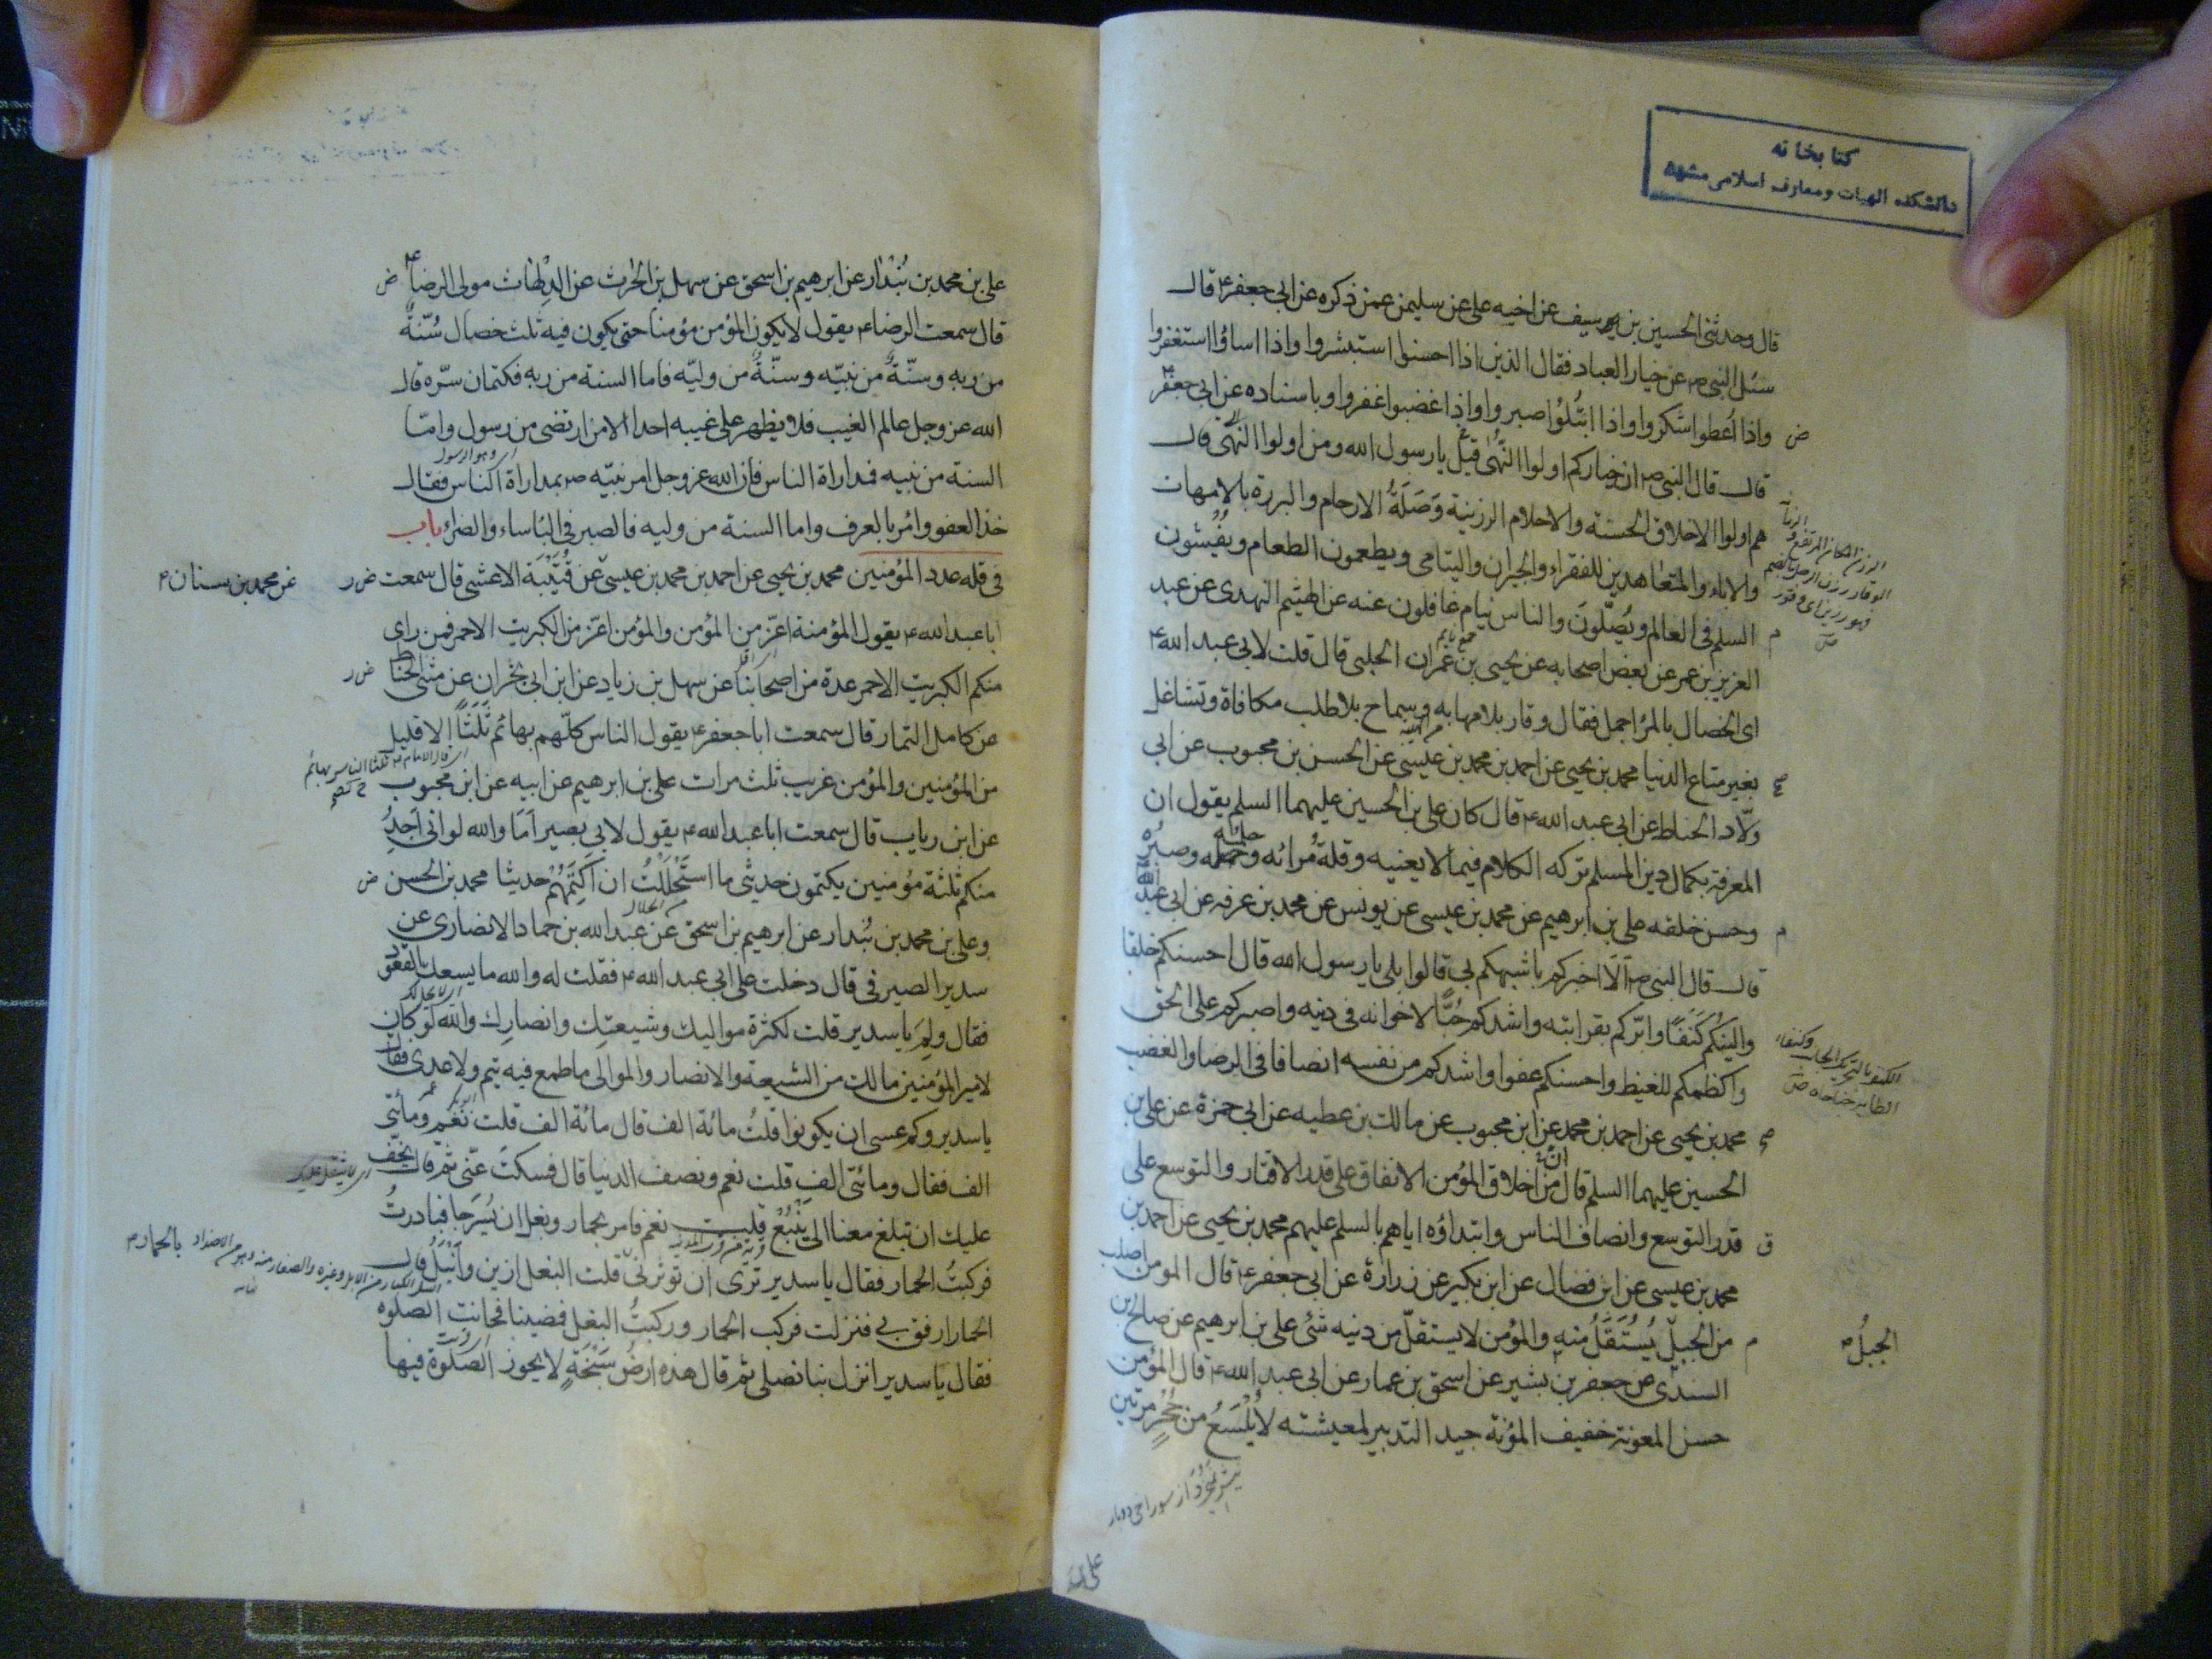 كتابخانه
دانشكده الهيات ومعارف اسلامى مشهد
قال وحدثنى الحسين بن سيف عن اخيه على عن سليمن عمن ذكره عن ابى جعفر ع قال
سئل النبى ص عن خيار العباد فقال الذين اذا احسنوا استبشروا واذا اساؤا استغفروا
واذا اُعطوا شكروا واذا ابتُلُوا صبروا واذا غضبوا غفروا وباسناده عن ابى جعفر ع
قال قال النبى ص ان خياركم اولوا النُّهى قيل يا رسول الله ومن اولوا النُّهى قال
هم اولوا الاخلاق الحسنة والاحلام الرزينة وَصَلَةُ الارحام والبررة بالامهات
والاباء والمتعاهدين للفقراء والجيران واليتامى ويطعمون الطعام ويُفشون
السلم فى العالم ويُصلّونَ والناس نيام غافلون عنه عن الهثيم النهدى عن عبد
العزيز بن عمر عن بعض اصحابه عن يحيى بن عمران الحلبى قال قلت لابى عبد الله ع
اى الخصال بالمرء اجمل فقال وقار بلا مهابه وسماح بلا طلب مكافاة وتشاغل
بغير متاع الدنيا محمد بن يحيى عن احمد بن محمد بن عيسى عن الحسن بن محبوب عن ابى
ولّاد الحناط عن ابى عبد الله ع قال كان على بن الحسين عليهما السلم يقول ان
المعرفة بكمال دين المسلم تركه الكلام فيما لا يعنيه وقلة مُرائه وحلمه وصبرُه
وحسن خلقه على بن ابرهيم عن محمد بن عيسى عن يونس عن محمد بن عرفه عن ابى عبد الله
قال قال النبى ص اَلَا اخبركم باشبهكم بى قالوا بلى يا رسول الله قال احسنكم خلقا
والينُكم كَنَفًا وابرّكم بقرابته واشدكم حُبًّا لاخوانه فى دينه واصبركم على الحق
واكظمكم للغيظ واحسنكم عفوا واشدكم من نفسه انصافا فى الرضا والغضب
محمد بن يحيى عن احمد بن محمد عن ابن محبوب عن مالك بن عطيه عن ابى حمزة عن على بن
الحسين عليهما السلم قال من اخلاق المؤمن الانفاق على قدر الاقتار والتوسع على
قدر التوسع وانصاف الناس وابتداؤه اياهم بالسلم عليهم محمد بن يحيى عن احمد بن
محمد بن عيسى عن ابن فضال عن ابن بكير عن زرارة عن ابى جعفر ع قال المومن اصلب
من الجبل يُستَقَلُّ منه والمؤمن لا يستقلّ من دينه شئ على بن ابرهيم عن صالح بن
السندى عن جعفر بن بشير عن اسحق بن عمار عن ابى عبد الله ع قال المؤمن
حسن المعونة خفيف المؤنة جيد التدبير لمعيشته لا يُلْسَعُ من جُحْرٍ مرتين
الجبلُ
على بن محمد بن بُندار عن ابرهيم بن اسحق عن سهل بن الحٰرث عن الدِلْهٰاث مولى الرضا ع
قال سمعت الرضا ع يقول لا يكون المؤمن مؤمنا حتى يكون فيه ثلث خصال سُنّةٌ
من ربه وسنّةٌ من نبيّه وسنّةٌ من وليّه فاما السنة من ربه فكتمان سرّه قال
الله عز وجل عالم الغيب فلا يظهر على غيبه احدا الا من ارتضى من رسول وامّا
السنة من نبيه فمداراة الناس فان الله عز وجل امر نبيّه ص بمداراة الناس فقال
خذ العفو وائمر بالعرف واما السنة من وليه فالصبر فى البأساء والضراء باب
فى قله عدد المؤمنين محمد بن يحيى عن احمد بن محمد بن عيسى عن قُتَيْبَة الاعشى قال سمعت
عن محمد بن سنان
ابا عبد الله ع يقول المؤمنة اعزّ من المؤمن والمؤمن اعزّ من الكبريت الاحمر فمن راى
منكم الكبريت الاحمر عدة من اصحابنا عن سهل بن زياد عن ابن ابى نجران عن مثنى الحناط
عن كامل التمار قال سمعت ابا جعفر ع يقول الناس كلّهم بهائم ثَلَثًا الا قليل
من المؤمنين والمؤمن غريب ثلث مرات على بن ابرهيم عن ابيه عن ابن محبوب
عن ابن رياب قال سمعت ابا عبد الله ع يقول لابى بصير اَمَا والله لو انى اَجِدُ
منكم ثلثة مؤمنين يكتمون حديثى ما استَحْلَلْتُ ان اَكتمَهُمْ حديثا محمد بن الحسن
وعلى بن محمد بن بُندار عن ابرهيم بن اسحق عن عبد الله بن حماد الانصارى عن
سدير الصيرفى قال دخلت على ابى عبد الله ع فقلت له والله ما يسعك القعود
فقال ولِمَ يا سدير قلت لكثرة مواليك وشيعتِك وانصارِك والله لو كان
لامير المؤمنين مالك من الشيعة والانصار والموالى ما طمع فيه تيم ولا عدى فقال
يا سدير وكم عسى ان يكونوا قلتُ مائة الف قال مائة الف قلت نعم ومائتى
الف فقال ومائتى الفٍ قلت نعم ونصف الدنيا قال فسكتَ عنّى ثم قال يخفّ
عليك ان تبلغ معنا الى يَنْبُعَ قلت نعم فامر بحمار وبغل ان يُسْرَجا فبادرتُ
فركبتُ الحمار فقال يا سدير ترى ان تؤثرنى قلت البغل ازين وانبلُ قال
الحمار ارفق بى فنزلت فركب الحمار وركبتُ البغل فمضينا فحانت الصلوه
فقال يا سدير انزل بنا نصلى ثم قال هذه ارض سَبْخَةٍ لا يجوز الصلوة فيها